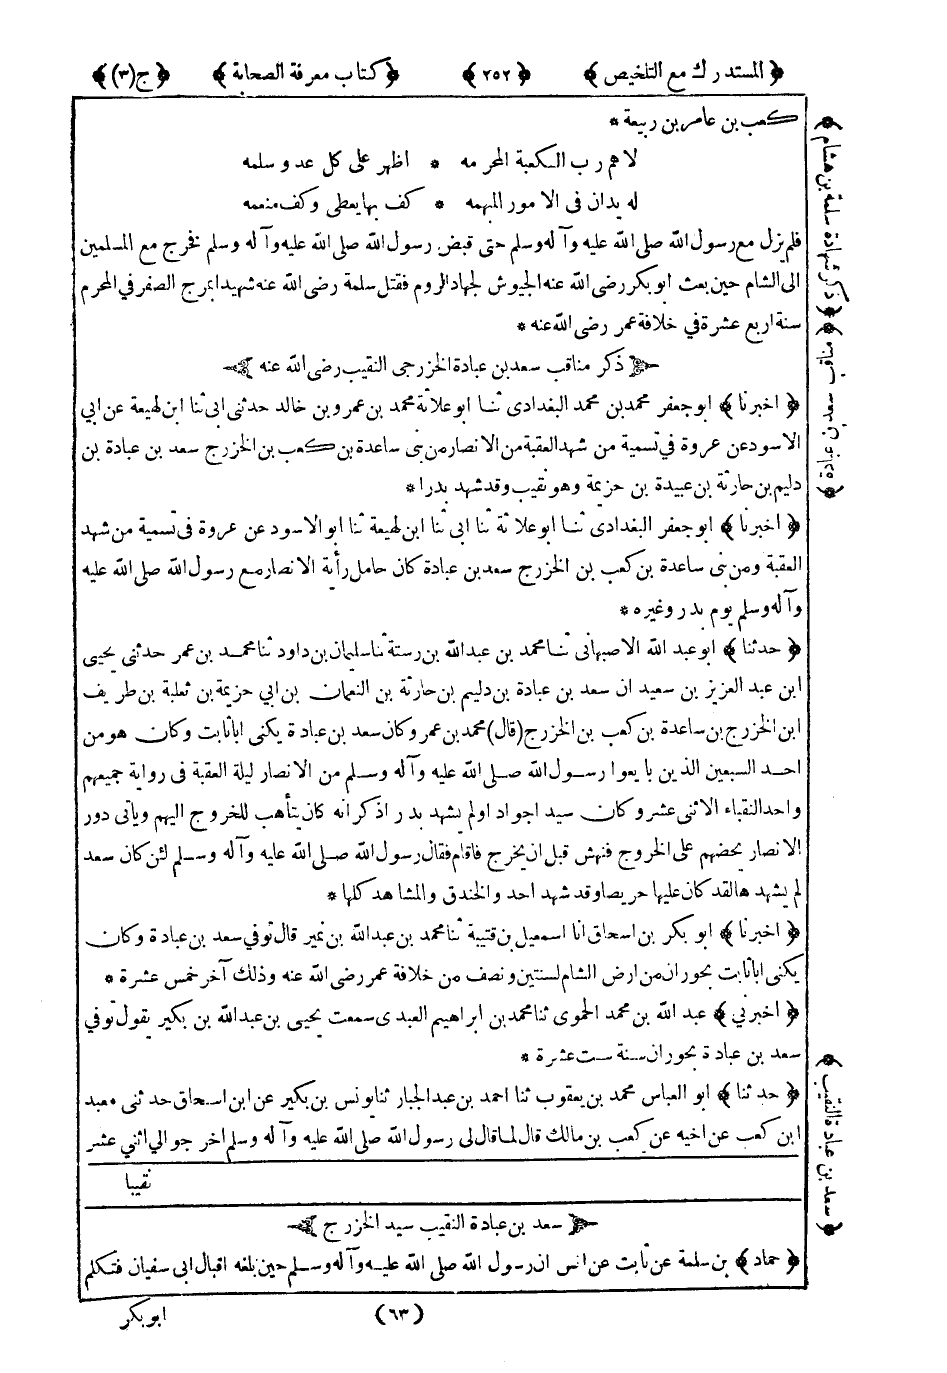 ﴿ المستدرك مع التلخيص ﴾ ﴿ ٢٥٢ ﴾ ﴿ كتاب معرفة الصحابة ﴾ ﴿ ج (٣) ﴾
كعب بن عامر بن ربيعة *
لاهم رب الكعبة المحرمه * اظهر على كل عدو سلمه
له يدان فى الامور المبهمه * كف بها يعطى وكف منعمه
فلم يزل مع رسول الله صلى الله عليه وآله وسلم حتى قبض رسول الله صلى الله عليه وآله وسلم فخرج مع المسلمين
الى الشام حين بعث ابوبكر رضى الله عنه الجيوش لجهاد الروم فقتل سلمة رضى الله عنه شهيدا بمرج الصفر في المحرم
سنة اربع عشرة في خلافة عمر رضى الله عنه *
﴿ ذكر مناقب سعد بن عبادة الخزرجى النقيب رضى الله عنه ﴾
﴿ اخبرنا ﴾ ابو جعفر محمد بن محمد البغدادى ثنا ابو علاثة محمد بن عمرو بن خالد حدثنى ابى ثنا ابن لهيعة عن ابي
الاسود عن عروة في تسمية من شهد العقبة من الانصار من بنى ساعدة بن كعب بن الخزرج سعد بن عبادة بن
دليم بن حارثة بن عبيدة بن حزيمة وهو نقيب وقد شهد بدرا *
﴿ اخبرنا ﴾ ابو جعفر البغدادى ثنا ابو علاثة ثنا ابى ثنا ابن لهيعة ثنا ابو الاسود عن عروة فى تسمية من شهد
العقبة ومن بنى ساعدة بن كعب بن الخزرج سعد بن عبادة كان حامل رأية الانصار مع رسول الله صلى الله عليه
وآله وسلم يوم بدر وغيره *
﴿ حدثنا ﴾ ابو عبد الله الاصبهانى ثنا محمد بن عبد الله بن رستة ثنا سليمان بن داود ثنا محمد بن عمر حدثنى يحيى
ابن عبد العزيز بن سعيد ان سعد بن عبادة بن دليم بن حارثة بن النعمان بن ابي حزيمة بن ثعلبة بن طريف
ابن الخزرج بن ساعدة بن كعب بن الخزرج (قال) محمد بن عمر وكان سعد بن عبادة يكنى اباثابت وكان هو من
احد السبعين الذين بايعوا رسول الله صلى الله عليه وآله وسلم من الانصار ليلة العقبة فى رواية جميعهم
واحد النقباء الاثنى عشر وكان سيد اجواد اولم يشهد بدر اذكر انه كان يتأهب للخروج اليهم ويأتى دور
الانصار يحضهم على الخروج فنهش قبل ان يخرج فاقام فقال رسول الله صلى الله عليه وآله وسلم لئن كان سعد
لم يشهدها لقد كان عليها حريصا وقد شهد احد والخندق والمشاهد كلها *
﴿ اخبرنا ﴾ ابو بكر بن اسحاق انا اسمعيل بن قتيبة ثنا محمد بن عبد الله بن نمير قال توفي سعد بن عبادة وكان
يكنى اباثابت بحوران من ارض الشام لسنتين ونصف من خلافة عمر رضى الله عنه وذلك آخر خمس عشرة *
﴿ اخبرني ﴾ عبد الله بن محمد الحموى ثنا محمد بن ابراهيم العبدى سمعت يحيى بن عبد الله بن بكير يقول توفي
سعد بن عبادة بحوران سنة ست عشرة *
﴿ حدثنا ﴾ ابو العباس محمد بن يعقوب ثنا احمد بن عبد الجبار ثنا يونس بن بكير عن ابن اسحاق حدثنى معبد
ابن كعب عن اخيه عن كعب بن مالك قال لما قال لى رسول الله صلى الله عليه وآله وسلم اخرجوا الي اثني عشر
نقيبا
﴿ سعد بن عبادة النقيب سيد الخزرج ﴾
﴿ حماد ﴾ بن سلمة عن ثابت عن انس ان رسول الله صلى الله عليه وآله وسلم حين بلغه اقبال ابى سفيان فتكلم
(٦٣)
ابو بكر
﴿ ذكر شهادة سلمة بن هشام ﴾
﴿ مناقب سعد بن عبادة ﴾
﴿ سعد بن عبادة النقيب ﴾